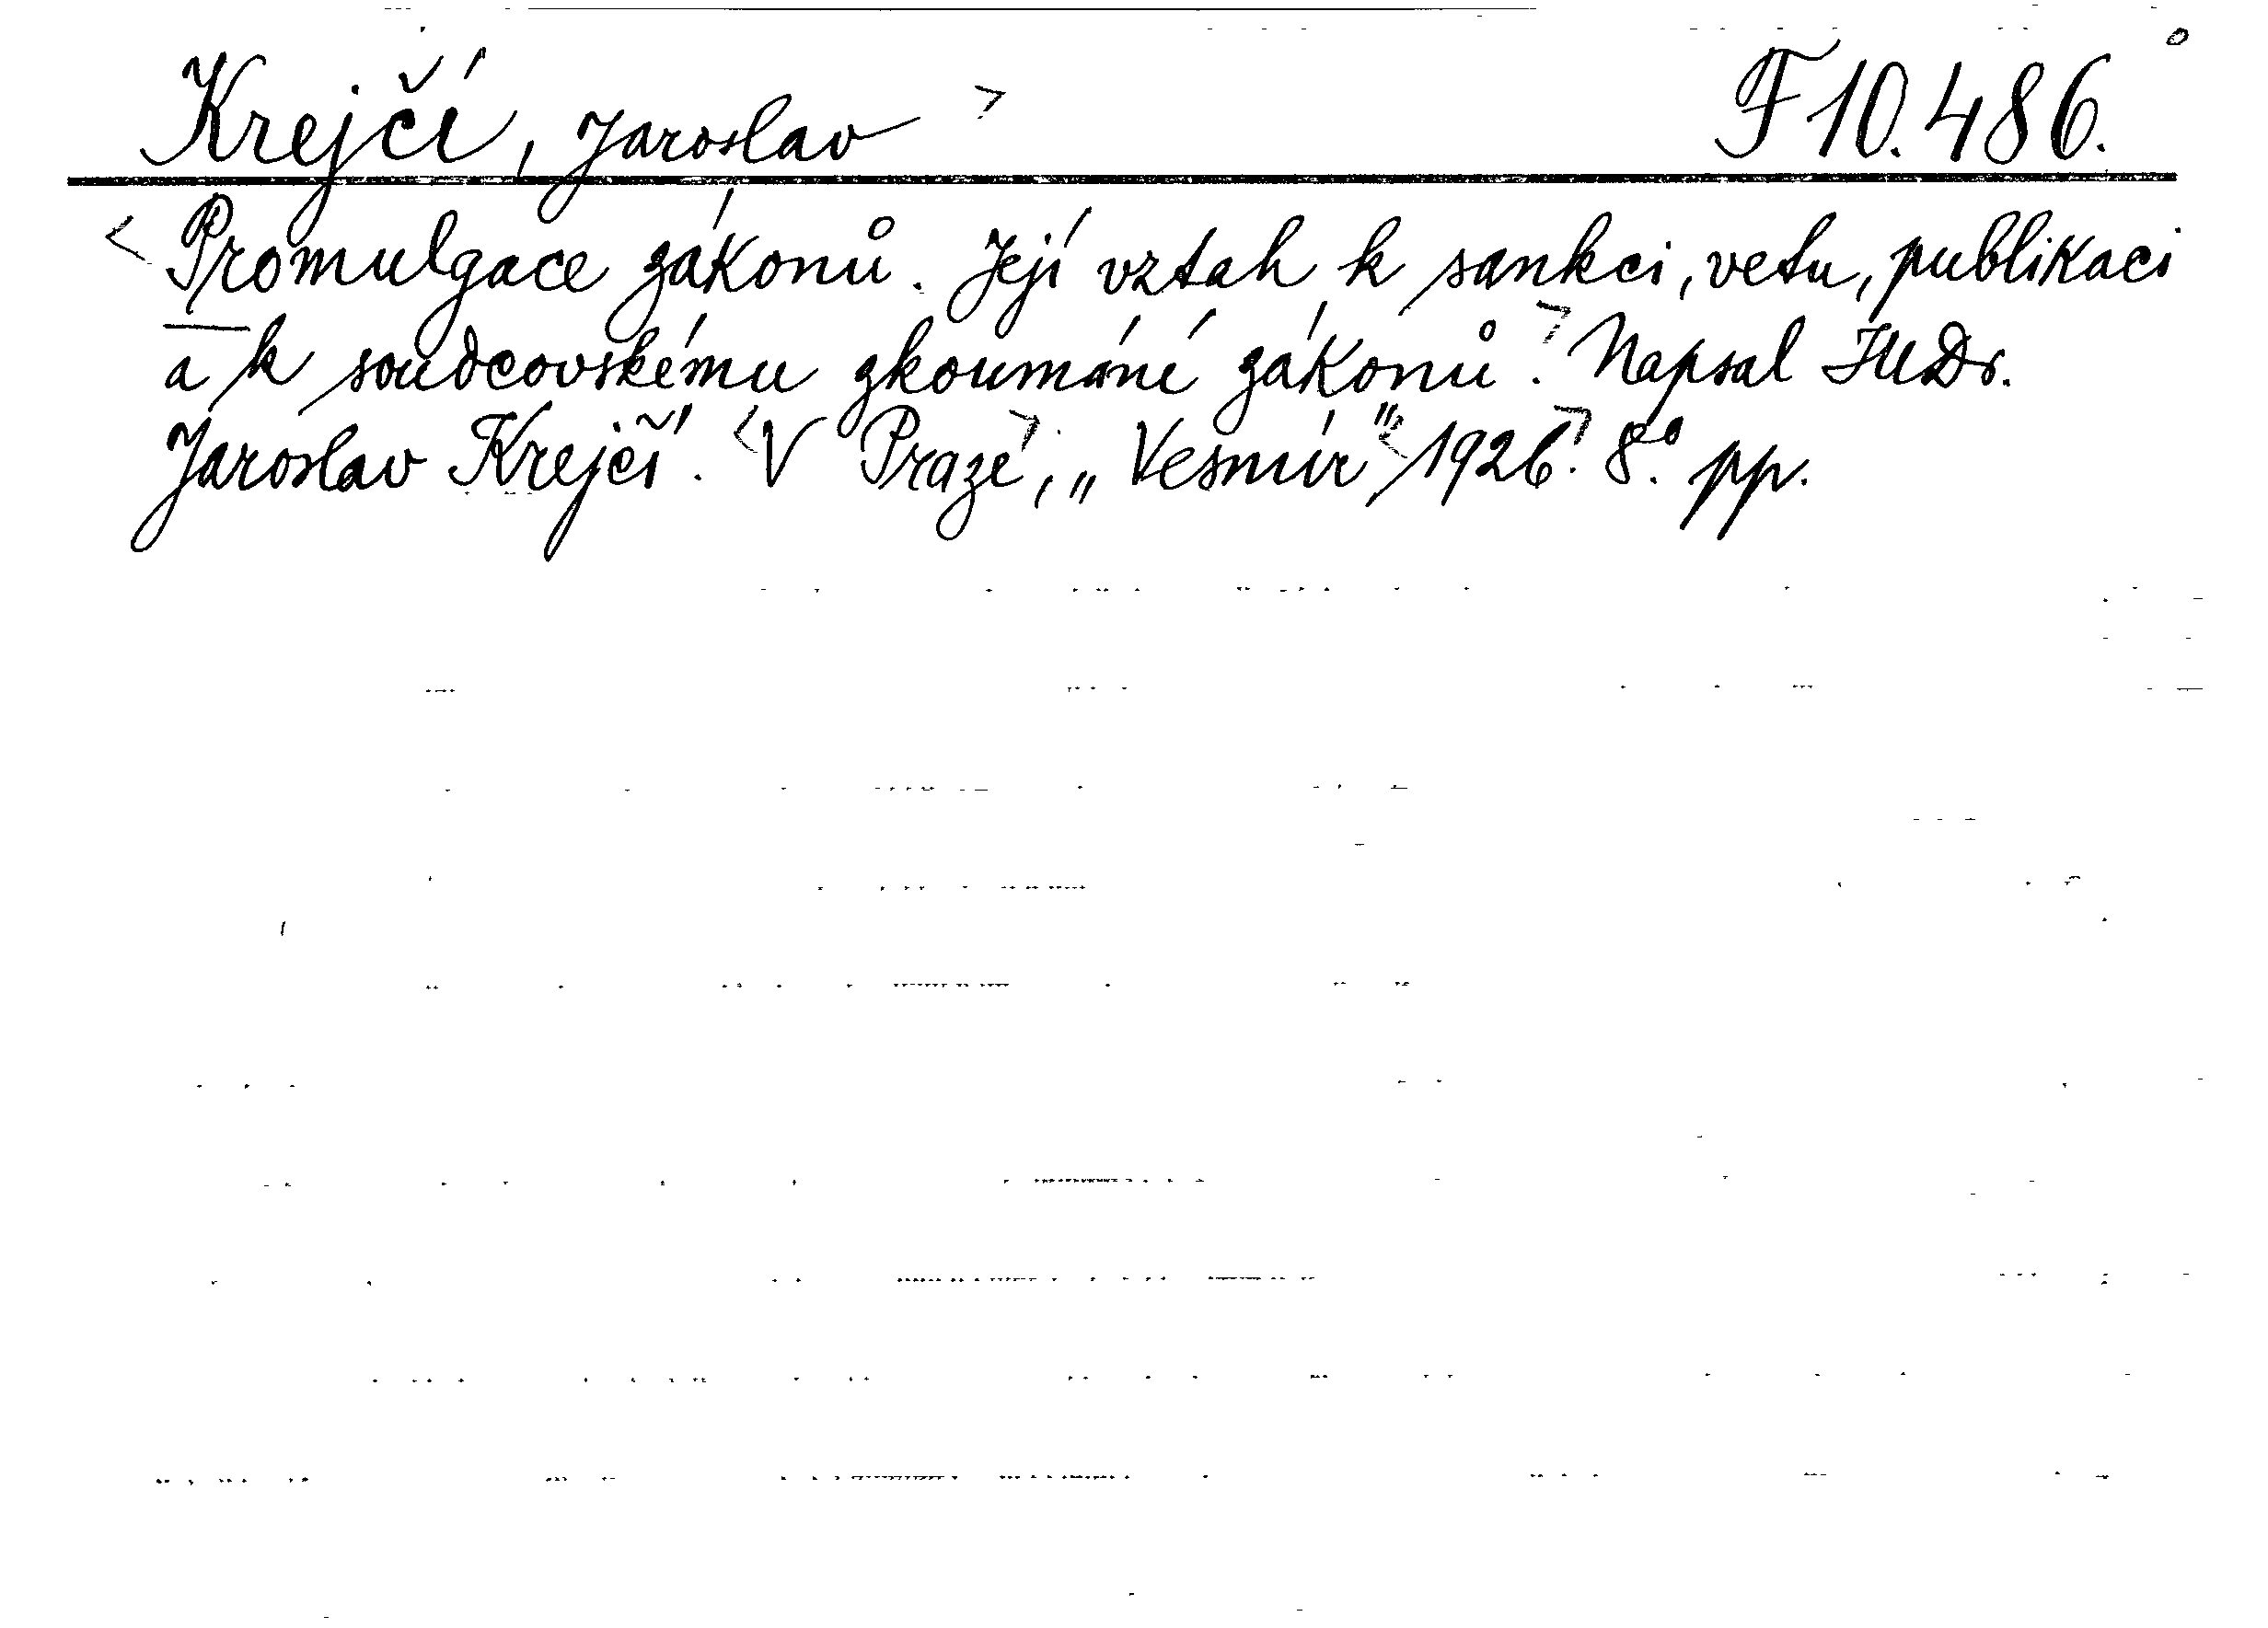 Krejčí, Jaroslav F 10.486.
Promulgace zákonů. Její vztah k sankci, vetu, publikaci
a k soudcovskému zkoumání zákonů. Napsal JUDr.
Jaroslav Krejčí. V Praze, „Vesmír" 1926. 8°. pp.